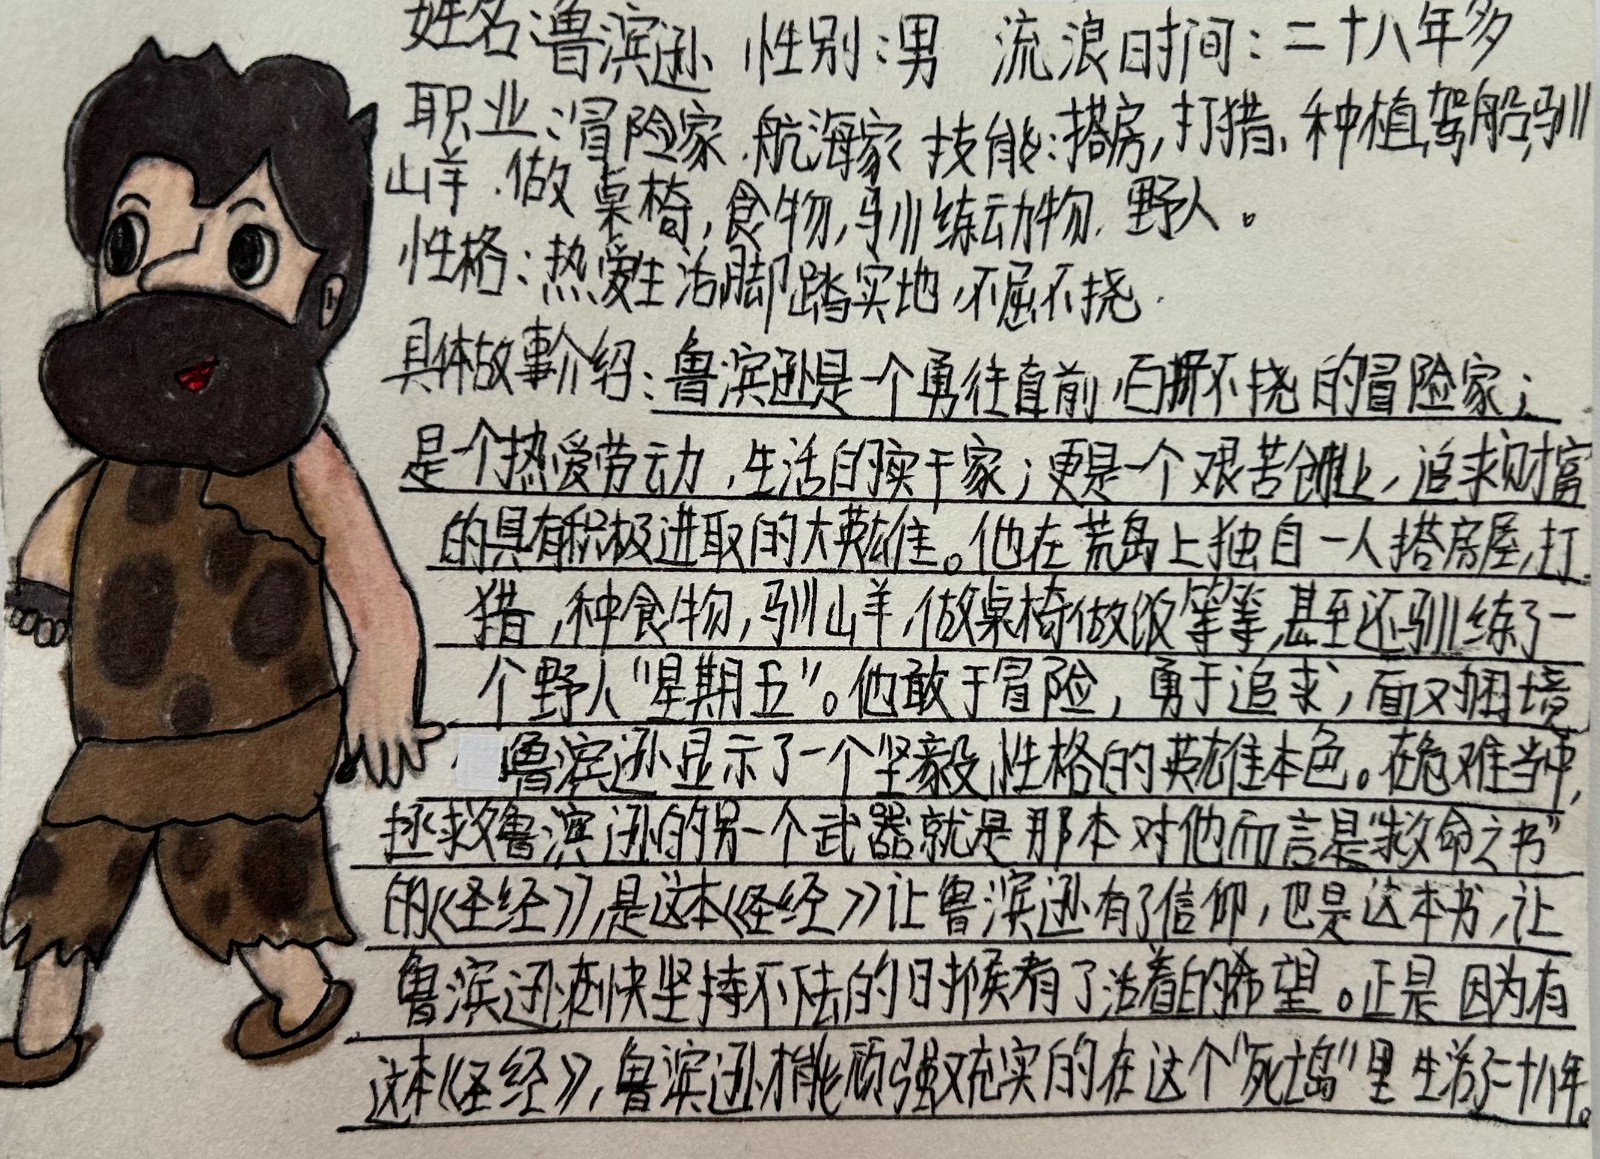 姓名:鲁滨逊 性别:男 流浪时间:二十八年多
职业:冒险家、航海家 技能:搭房,打猎、种植,驾船,驯
山羊、做桌椅,食物,驯练动物、野人。
性格:热爱生活脚踏实地,不屈不挠.
具体故事介绍:鲁滨逊是一个勇往直前,百折不挠的冒险家;
是一个热爱劳动,生活的实干家;更是一个艰苦创业,追求财富
的具有积极进取的大英雄。他在荒岛上独自一人搭房屋,打
猎,种食物,驯山羊,做桌椅做饭等等,甚至还驯练了一
个野人“星期五”。他敢于冒险,勇于追求,面对困境
鲁滨逊显示了一个坚毅性格的英雄本色。在危难当中,
拯救鲁滨逊的另一个武器就是那本对他而言是“救命之书”
的《圣经》,是这本《圣经》让鲁滨逊有了信仰,也是这本书,让
鲁滨逊在快坚持不住的时候有了活着的希望。正是因为有
这本《圣经》,鲁滨逊才能顽强又充实的在这个“死岛”里生活了二十八年。